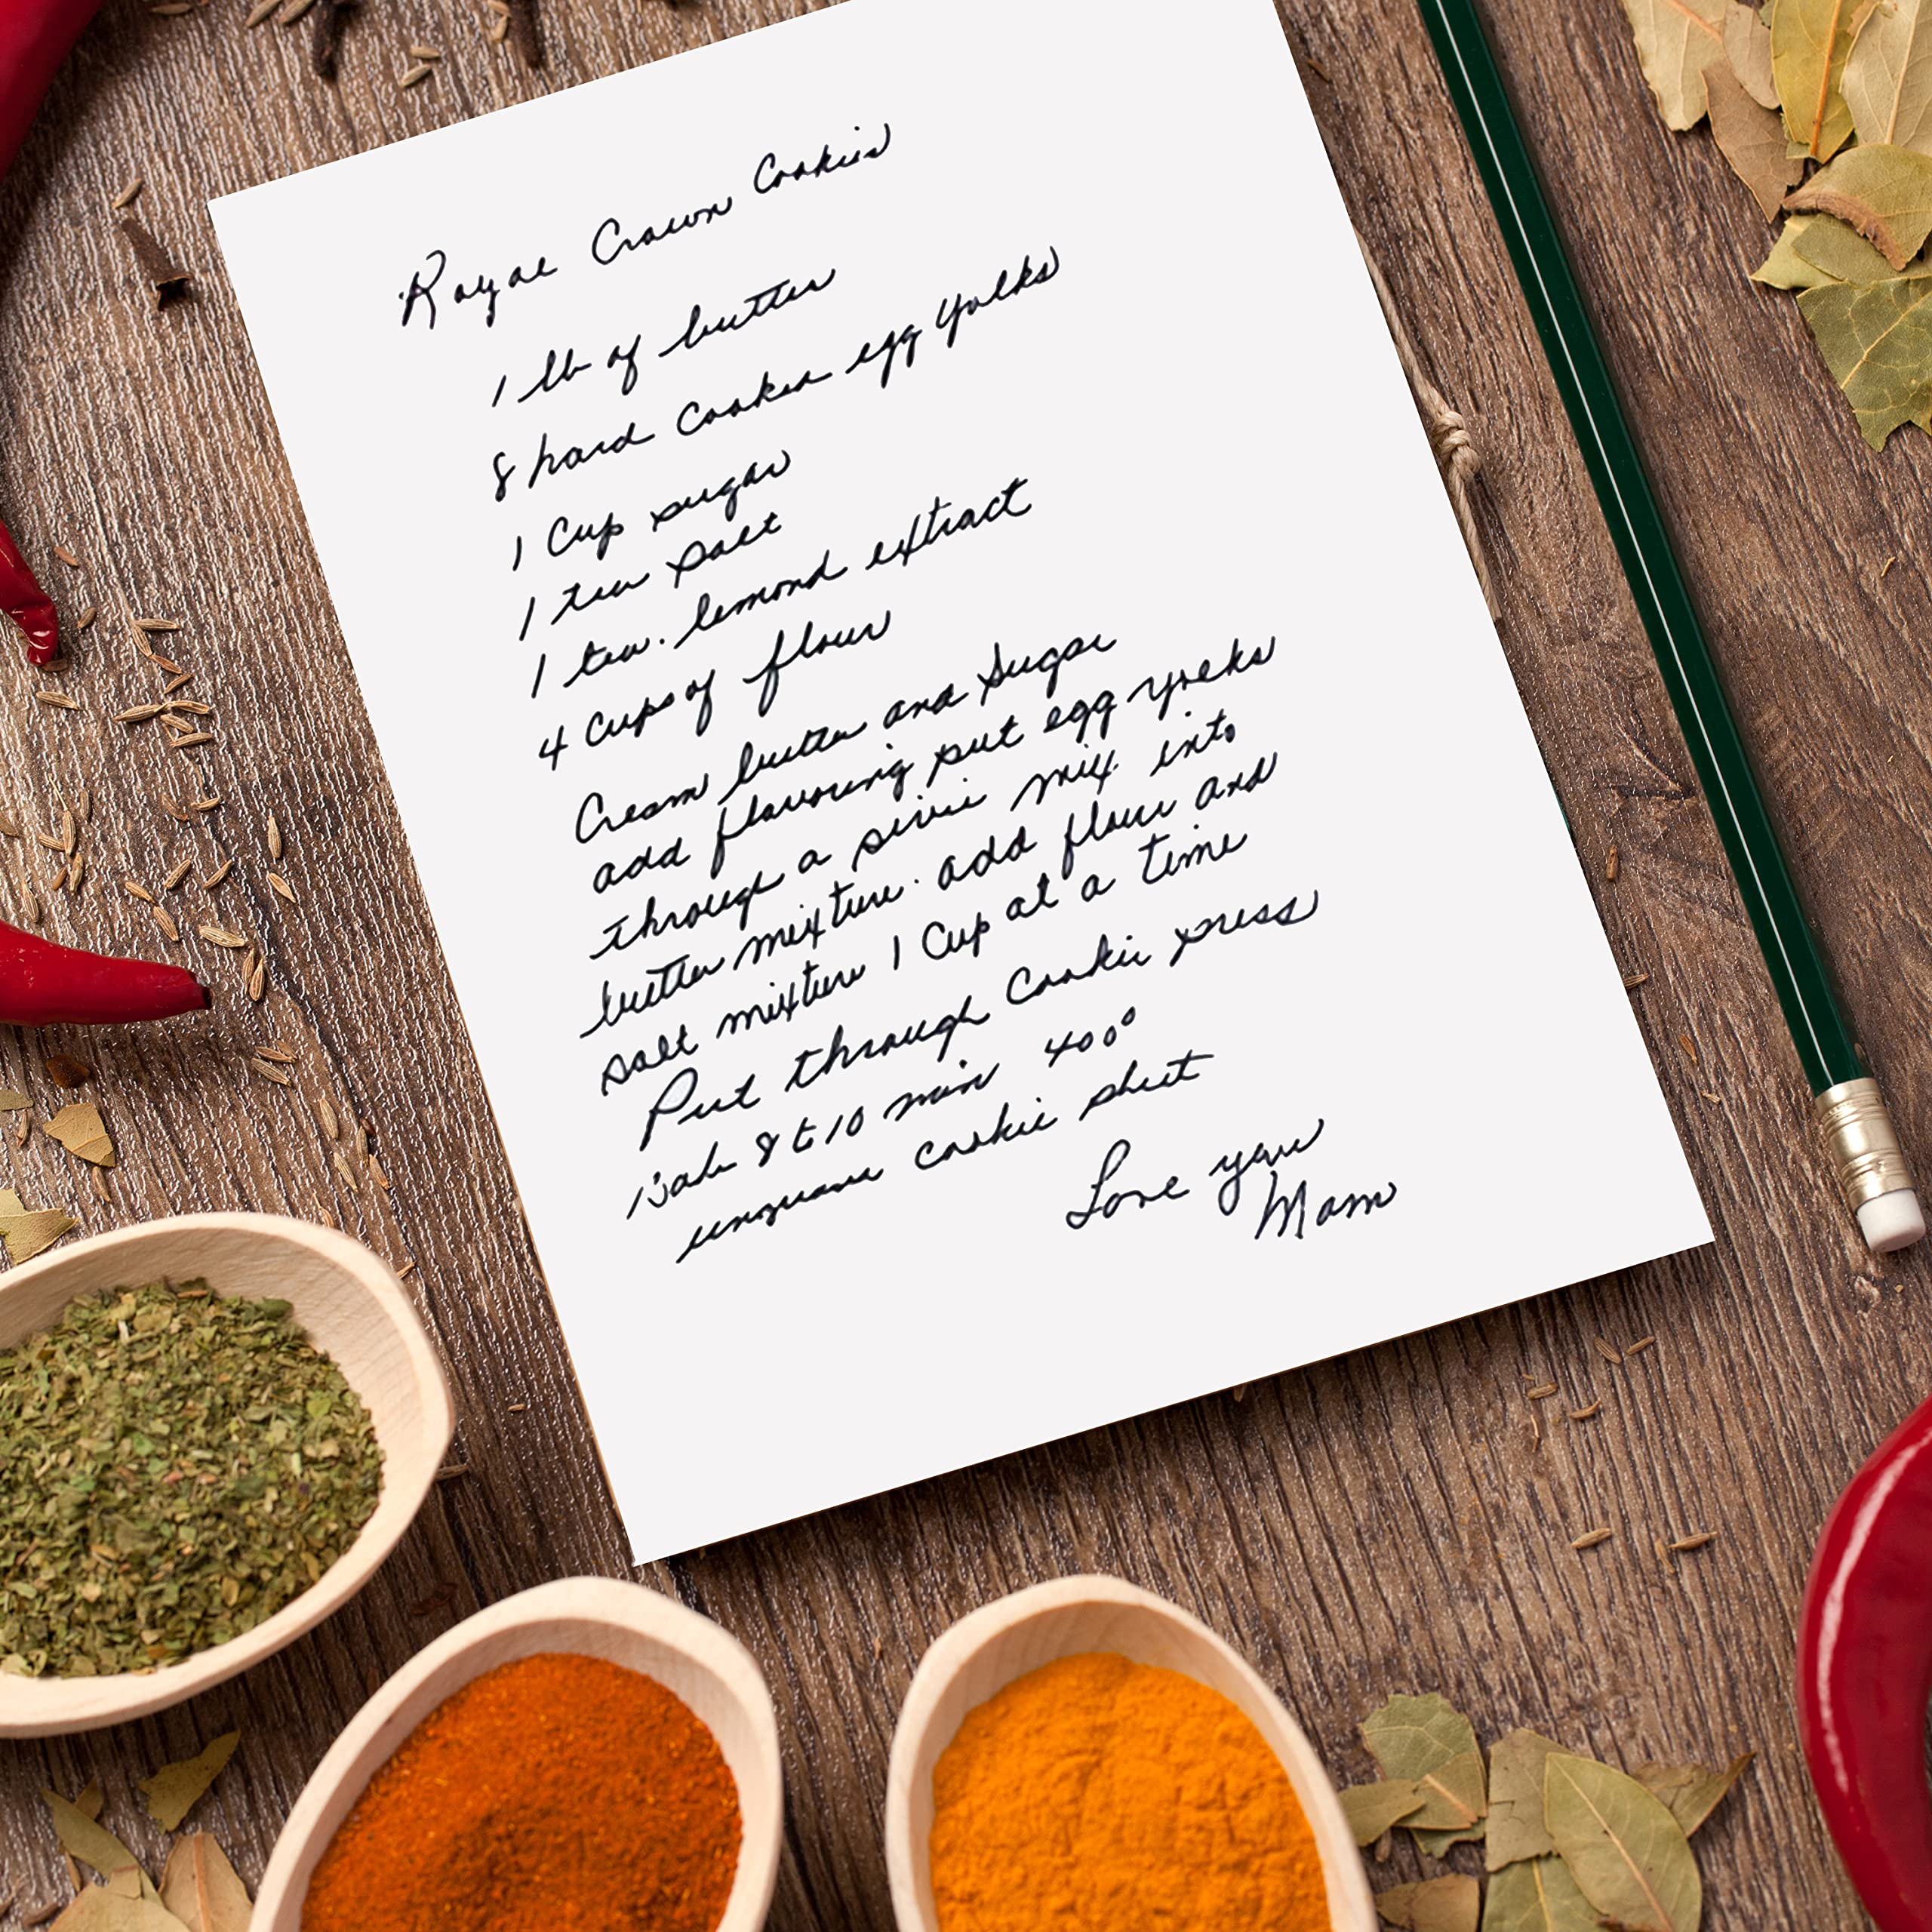 Royal Crown Cookies
1 lb of butter
8 hard cooked egg yolks
1 Cup sugar
1 tea salt
1 tea. lemond extract
4 Cups of flour
Cream butter and sugar
add flavouring put egg yolks
through a seive mix into
butter mixture. add flour and
salt mixture 1 Cup at a time
Put through Cookie press
Bake 8 to 10 min 400°
ungreased cookie sheet
Love you
Mom